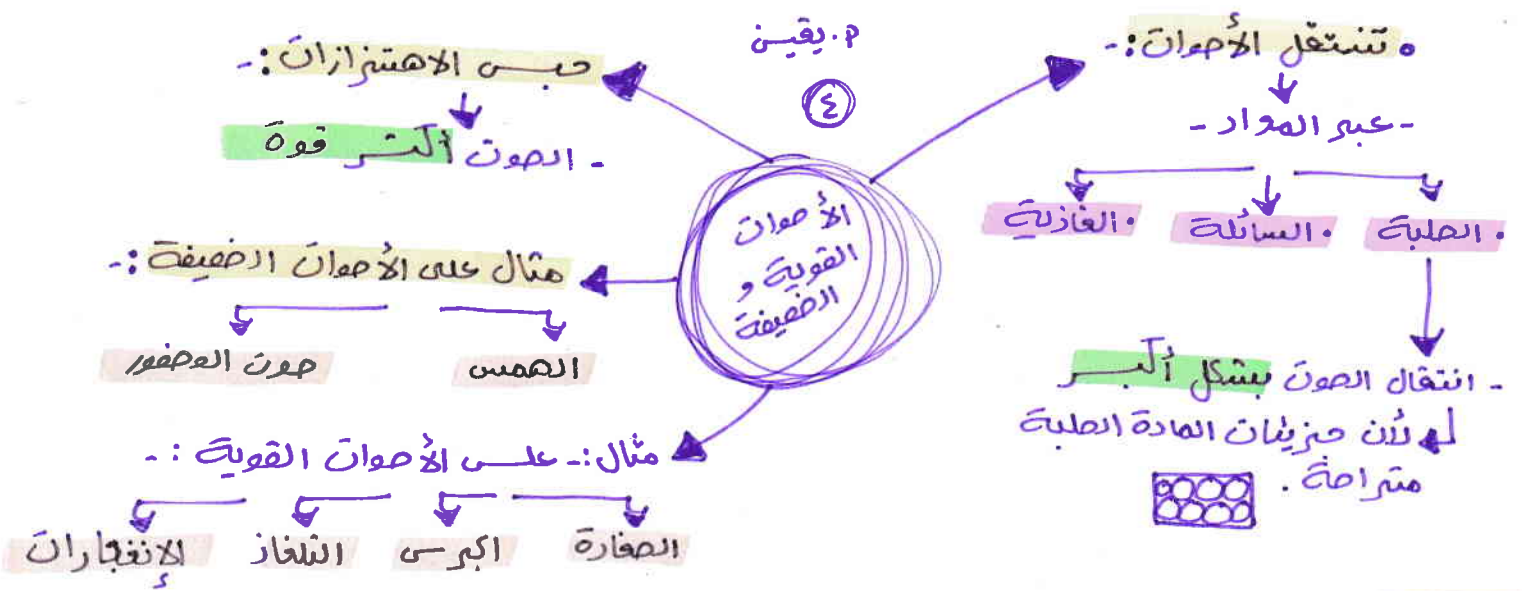 م. يقين
٤
الأصوات
القوية و
الخفيفة
• تنتقل الأصوات:-
- عبر المواد -
• الصلبة • السائلة • الغازية
- انتقال الصوت بشكل أكبر
لأن جزيئات المادة الصلبة
متراصة.
حبس الاهتزازات:-
- الصوت أكثر قوة
مثال على الأصوات الخفيفة:-
الهمس صوت العصفور
مثال:- على الأصوات القوية:-
الصفارة الجرس التلفاز الإنفجارات